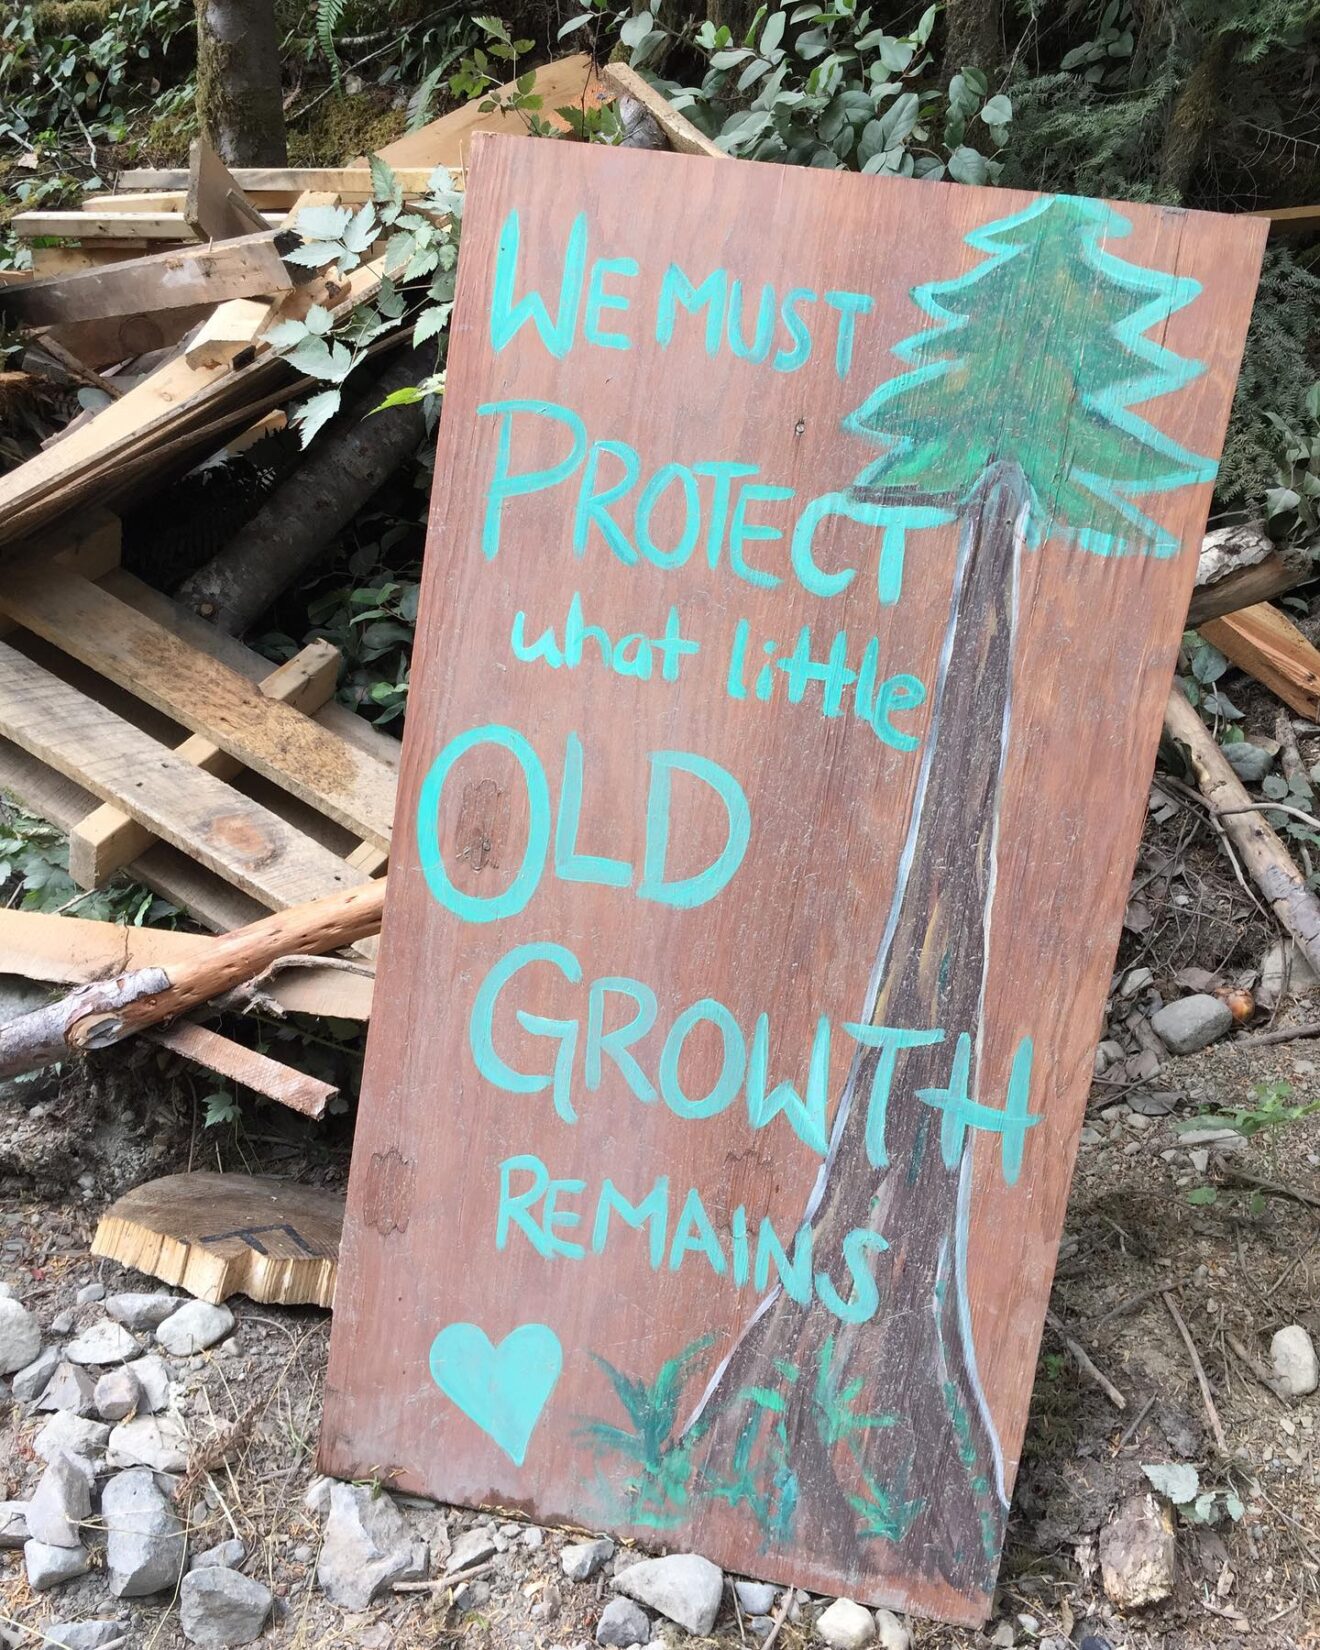 WE MUST
PROTECT
what little
OLD
GROWTH
REMAINS